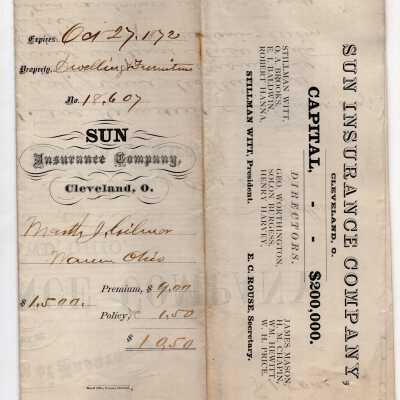 Expires Oct 27, 1872
Property, Dwelling & Furniture
No. 18,607
SUN
Insurance Company,
Cleveland, O.
Warren Ohio
Premium, $ 9.00
$ 1,500.
Policy, 1.50
$ 10.50
SUN INSURANCE COMPANY,
CLEVELAND, O.
CAPITAL, - - $200,000.
DIRECTORS.
STILLMAN WITT,
O. A. BROOKS,
E. I. BALDWIN,
ROBERT HANNA,
GEO. WORTHINGTON,
SOLON BURGESS,
HENRY HARVEY,
JAMES MASON,
H. M. CHAPIN,
WM. HEWITT,
W. H. PRICE.
STILLMAN WITT, President.
E. C. ROUSE, Secretary.